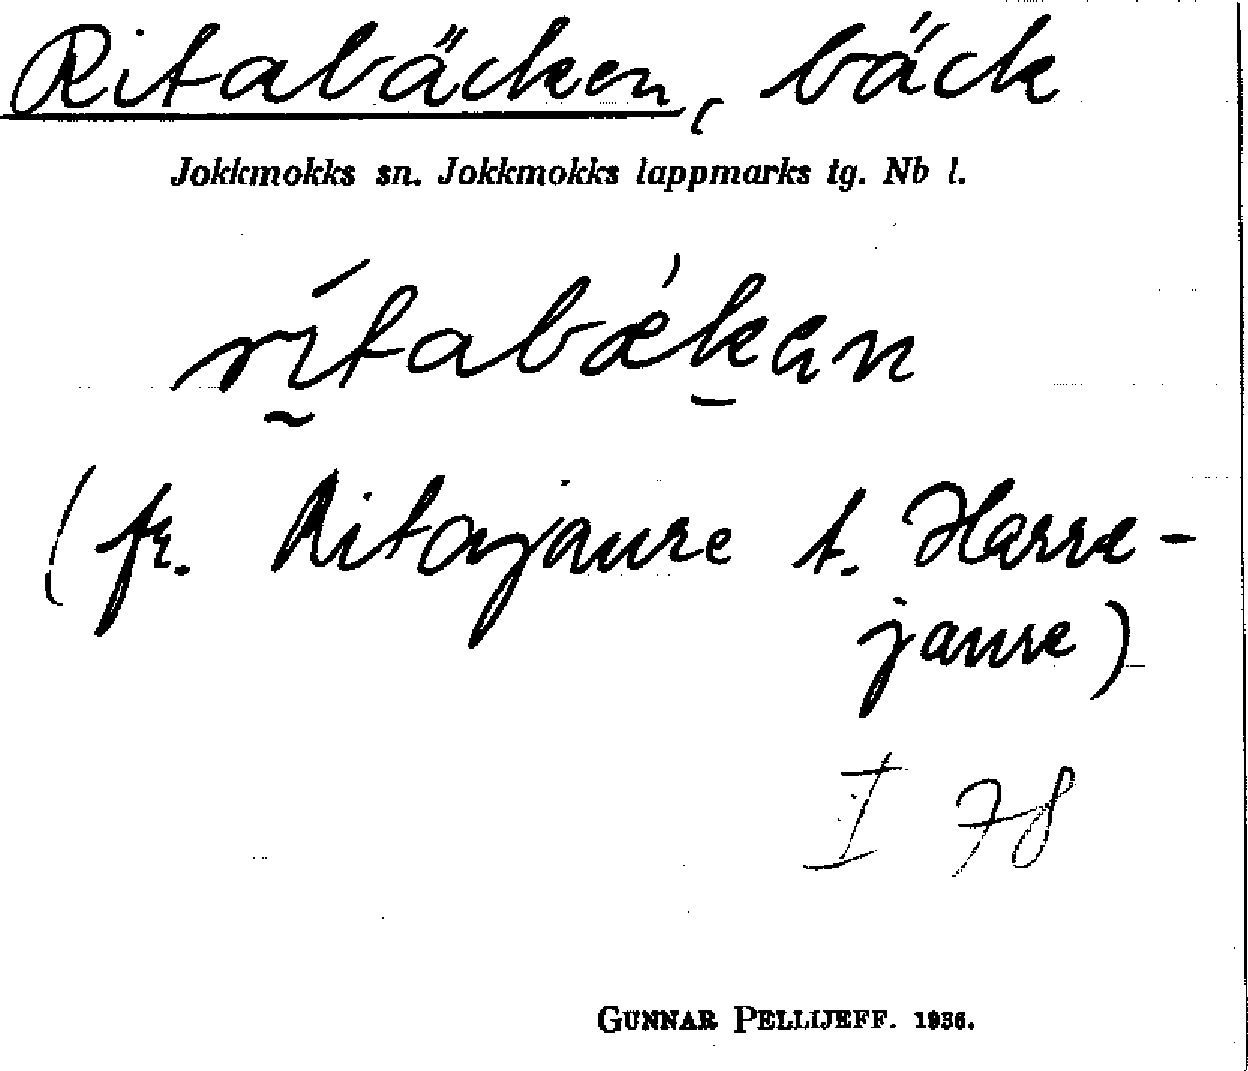 Ritabäcken, bäck
Jokkmokks sn. Jokkmokks lappmarks tg. Nb l.
rítabǽkan
(fr. Ritajaure t. Harre-
jaure)
I 78
GUNNAR PELLIJEFF. 1936.